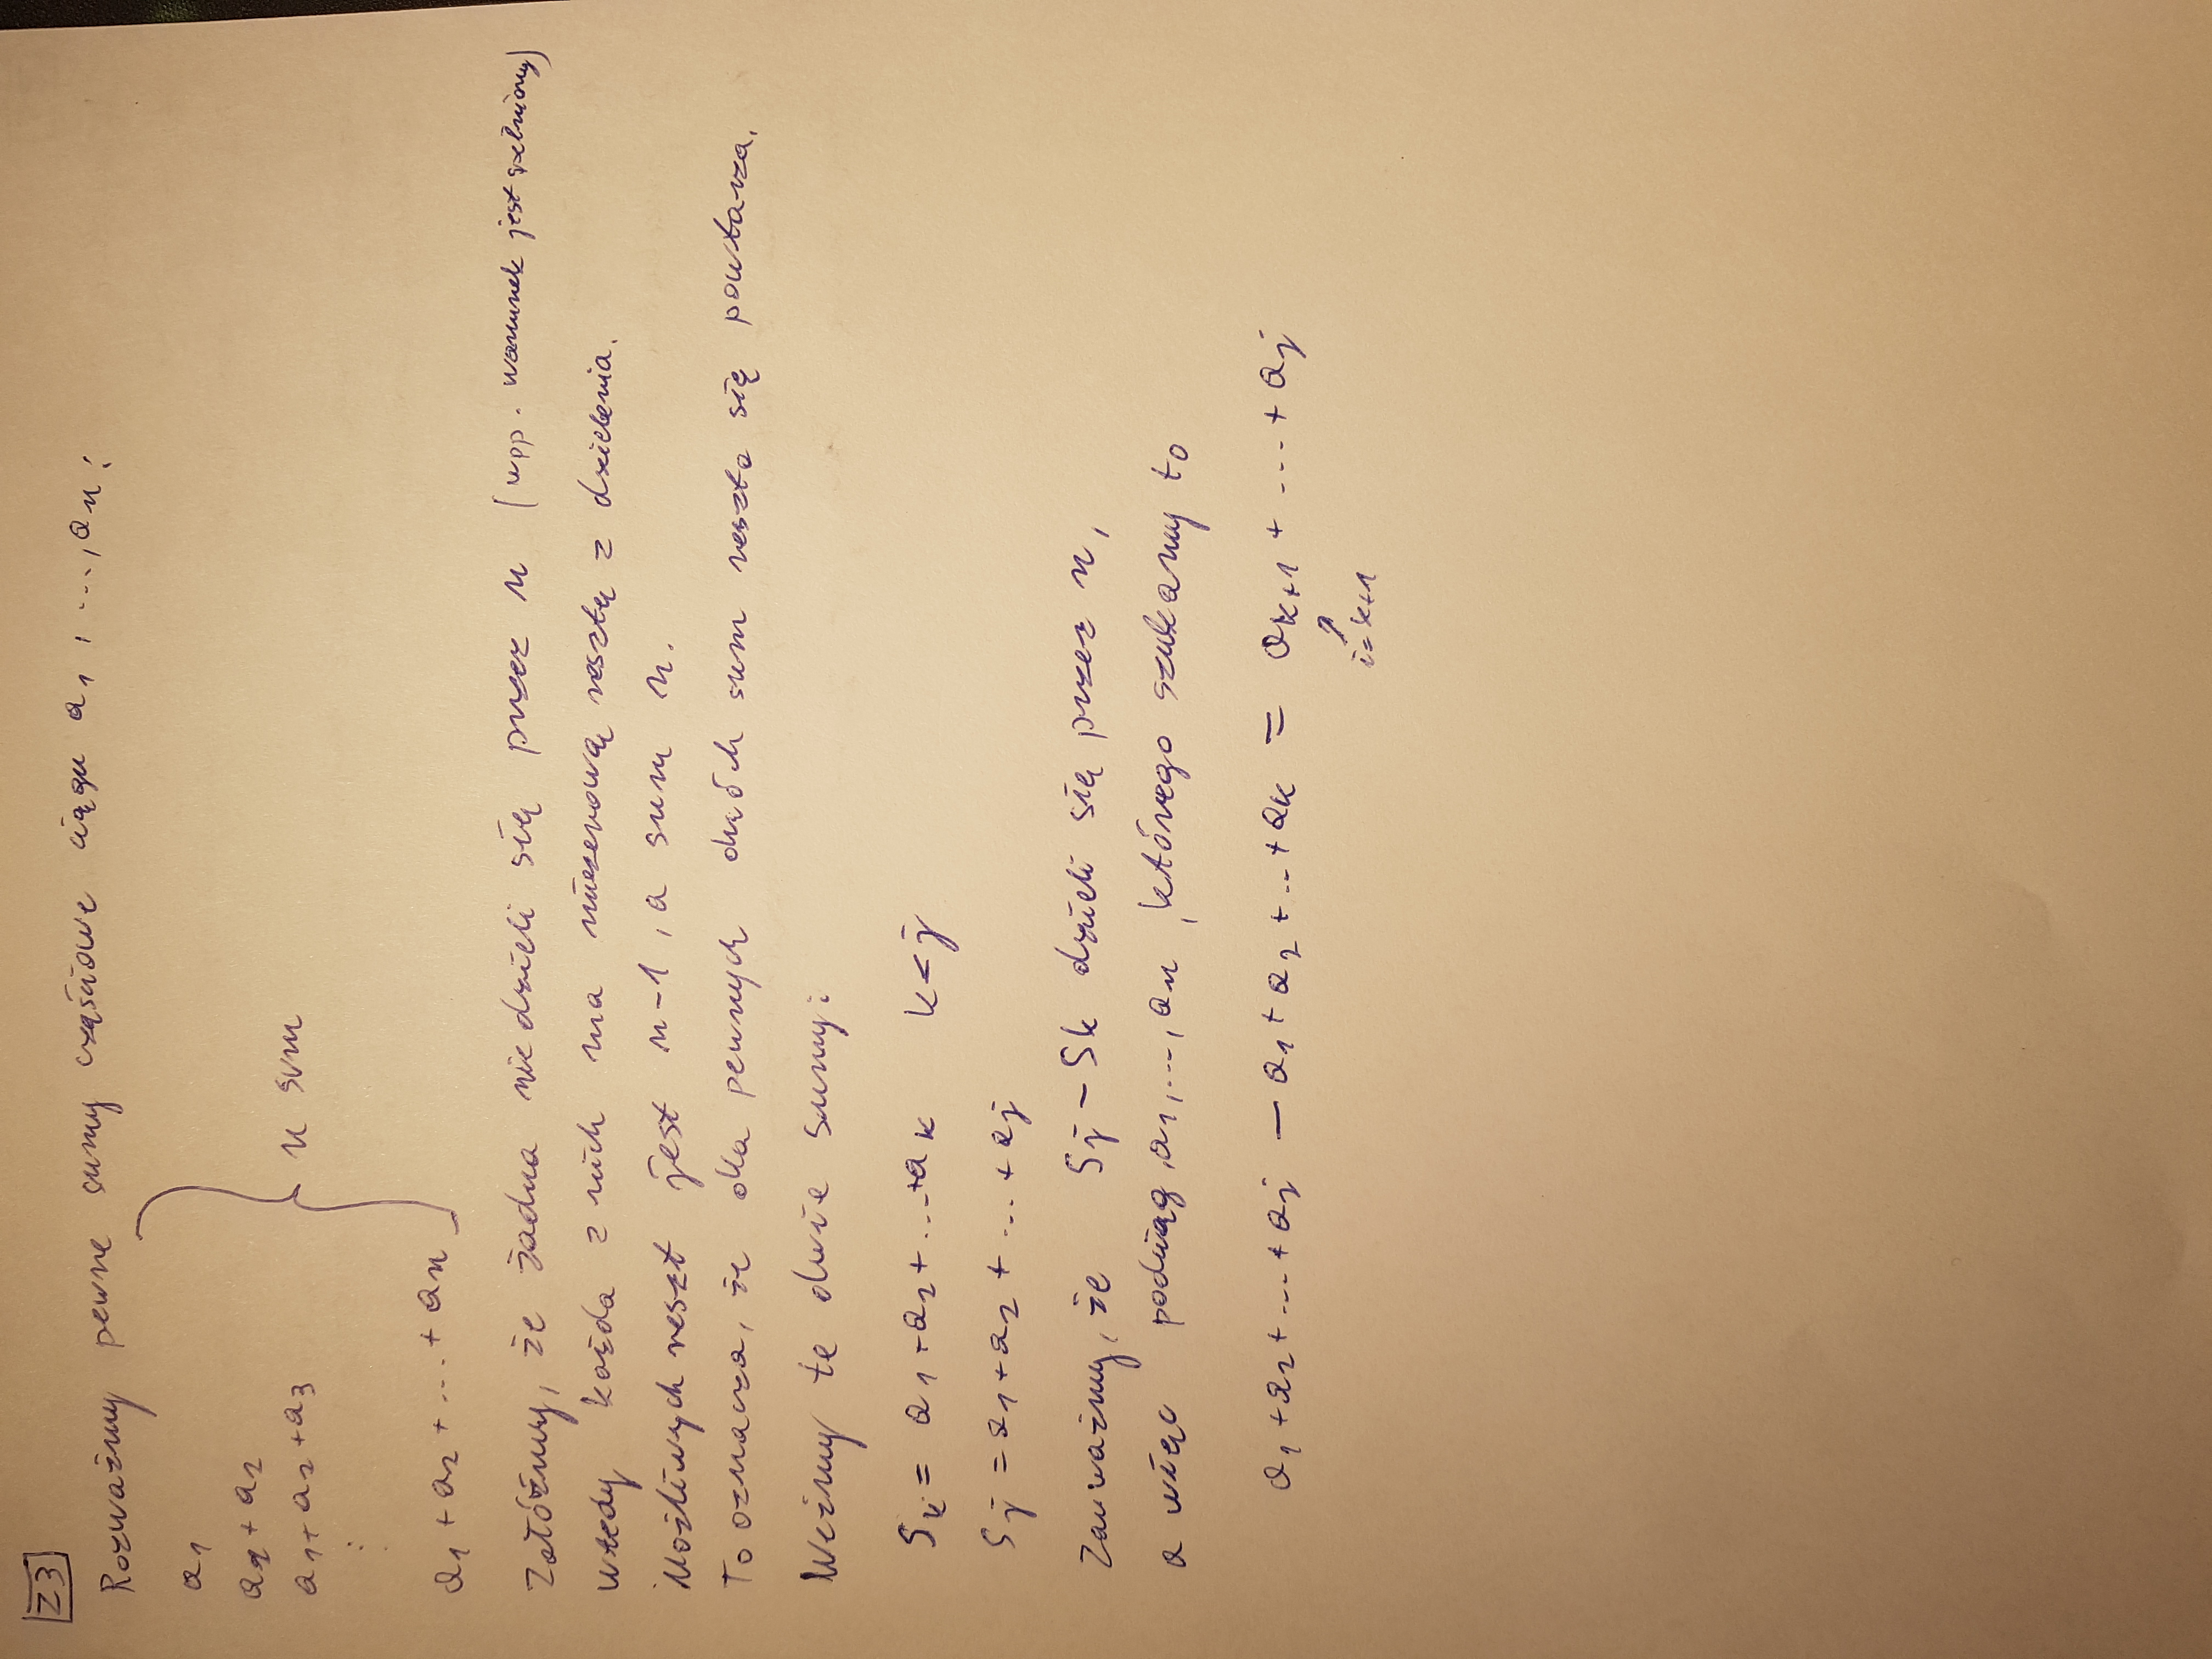 Z3
Rozważmy pewne sumy częściowe ciągu a1, ..., an:
a1
a1 + a2
a1 + a2 + a3
⋮
a1 + a2 + ... + an
n sum
Załóżmy, że żadna nie dzieli się przez n (wpp. warunek jest spełniony)
wtedy każda z nich ma niezerową resztę z dzielenia.
Możliwych reszt jest n-1, a sum n.
To oznacza, że dla pewnych dwóch sum reszta się powtarza.
Weźmy te dwie sumy:
Sk = a1 + a2 + ... + ak k<j
Sj = a1 + a2 + ... + aj
Zauważmy, że Sj - Sk dzieli się przez n,
a więc podciąg a1, ..., an, którego szukamy to
a1 + a2 + ... + aj - a1 + a2 + .. + ak = ak+1 + ... + aj
↑
i=k+1